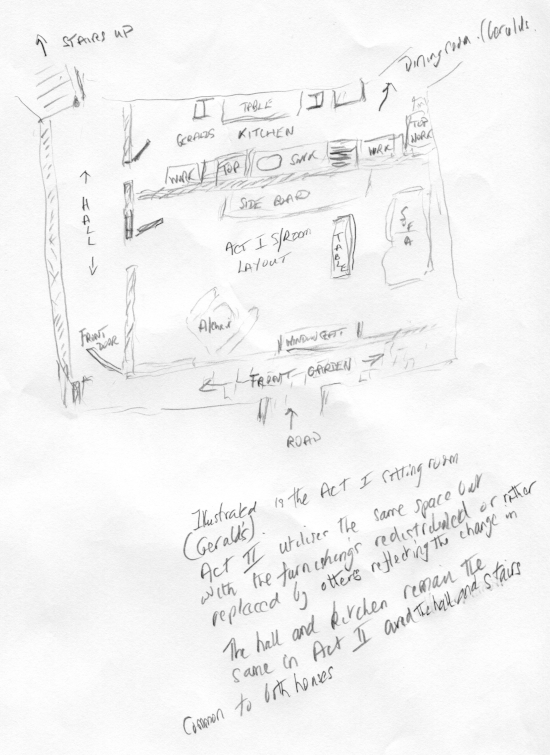 STAIRS UP
Dining room. (Geralds.
TABLE
GERALDS KITCHEN
TOP
WORK
WORK
TOP
SINK
WORK
SIDE BOARD
HALL
ACT I S/ROOM
LAYOUT
TABLE
FRONT
DOOR
WINDOW SEAT
FRONT GARDEN
ROAD
Illustrated is the ACT I sitting room
(Gerald's)
ACT II utilises the same space but
with the furnishings redistributed or rather
replaced by others reflecting the change in
The hall and kitchen remain the
same in Act II and the hall and stairs
Common to both houses